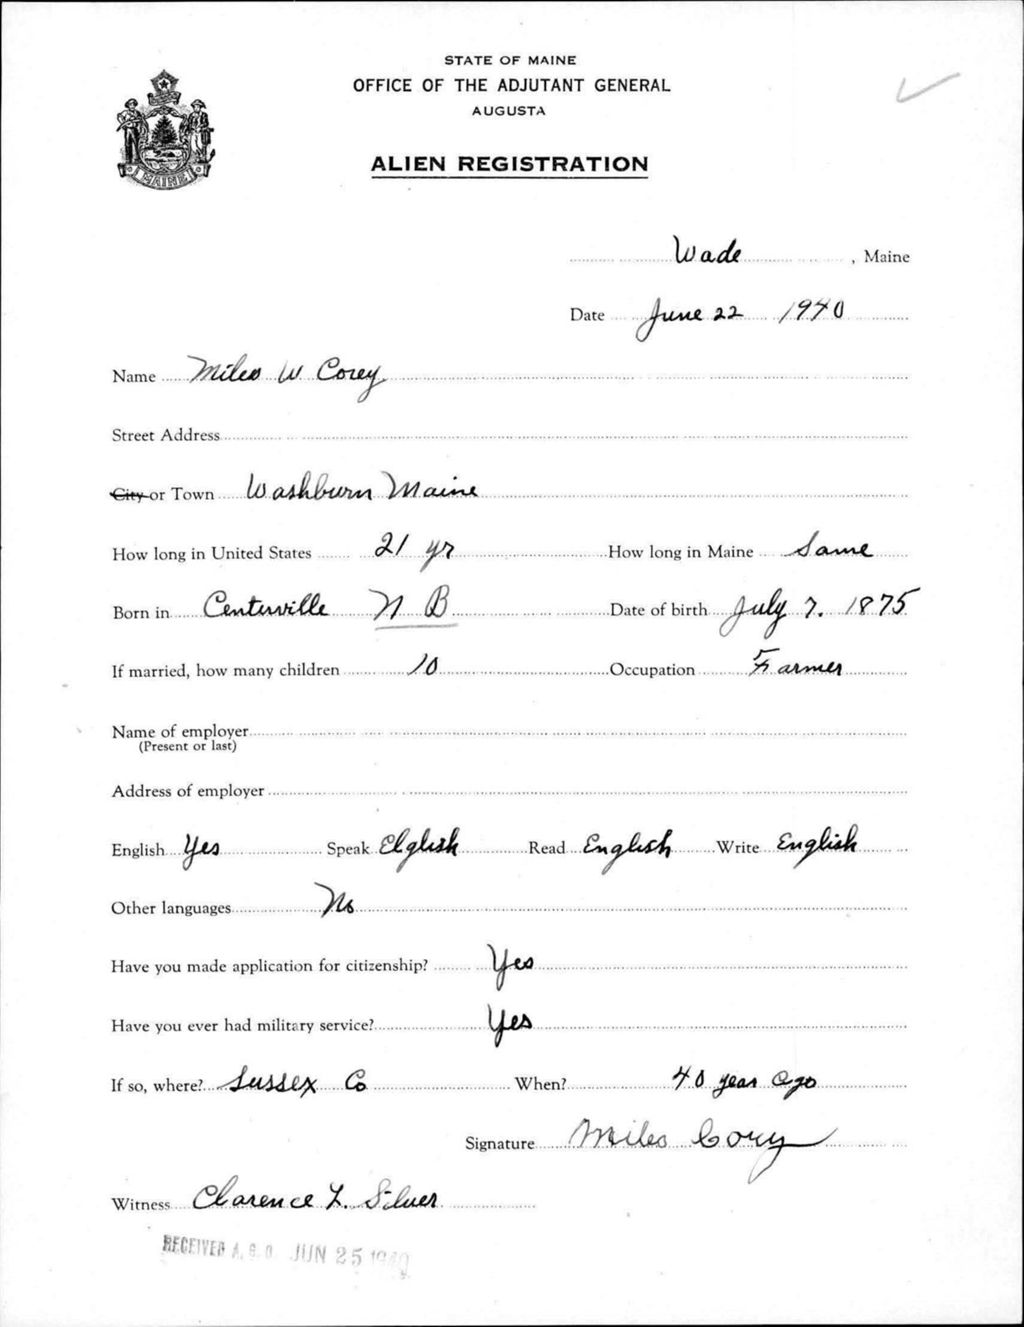 STATE OF MAINE
OFFICE OF THE ADJUTANT GENERAL
AUGUSTA
ALIEN REGISTRATION
MAINE
Wade, Maine
Date June 22 1940
Name Miles W Corey
Street Address
City or Town Washburn Maine
How long in United States 21 yr How long in Maine Same
Born in Centerville N B Date of birth July 7. 1875
If married, how many children 10 Occupation Farmer
Name of employer
(Present or last)
Address of employer
English Yes Speak Elglish Read English Write English
Other languages No
Have you made application for citizenship? Yes
Have you ever had military service? Yes
If so, where? Sussex Co When? 40 year ago
Signature Miles Cory
Witness Clarence L. Silver
RECEIVED A. G. O. JUN 25 1940